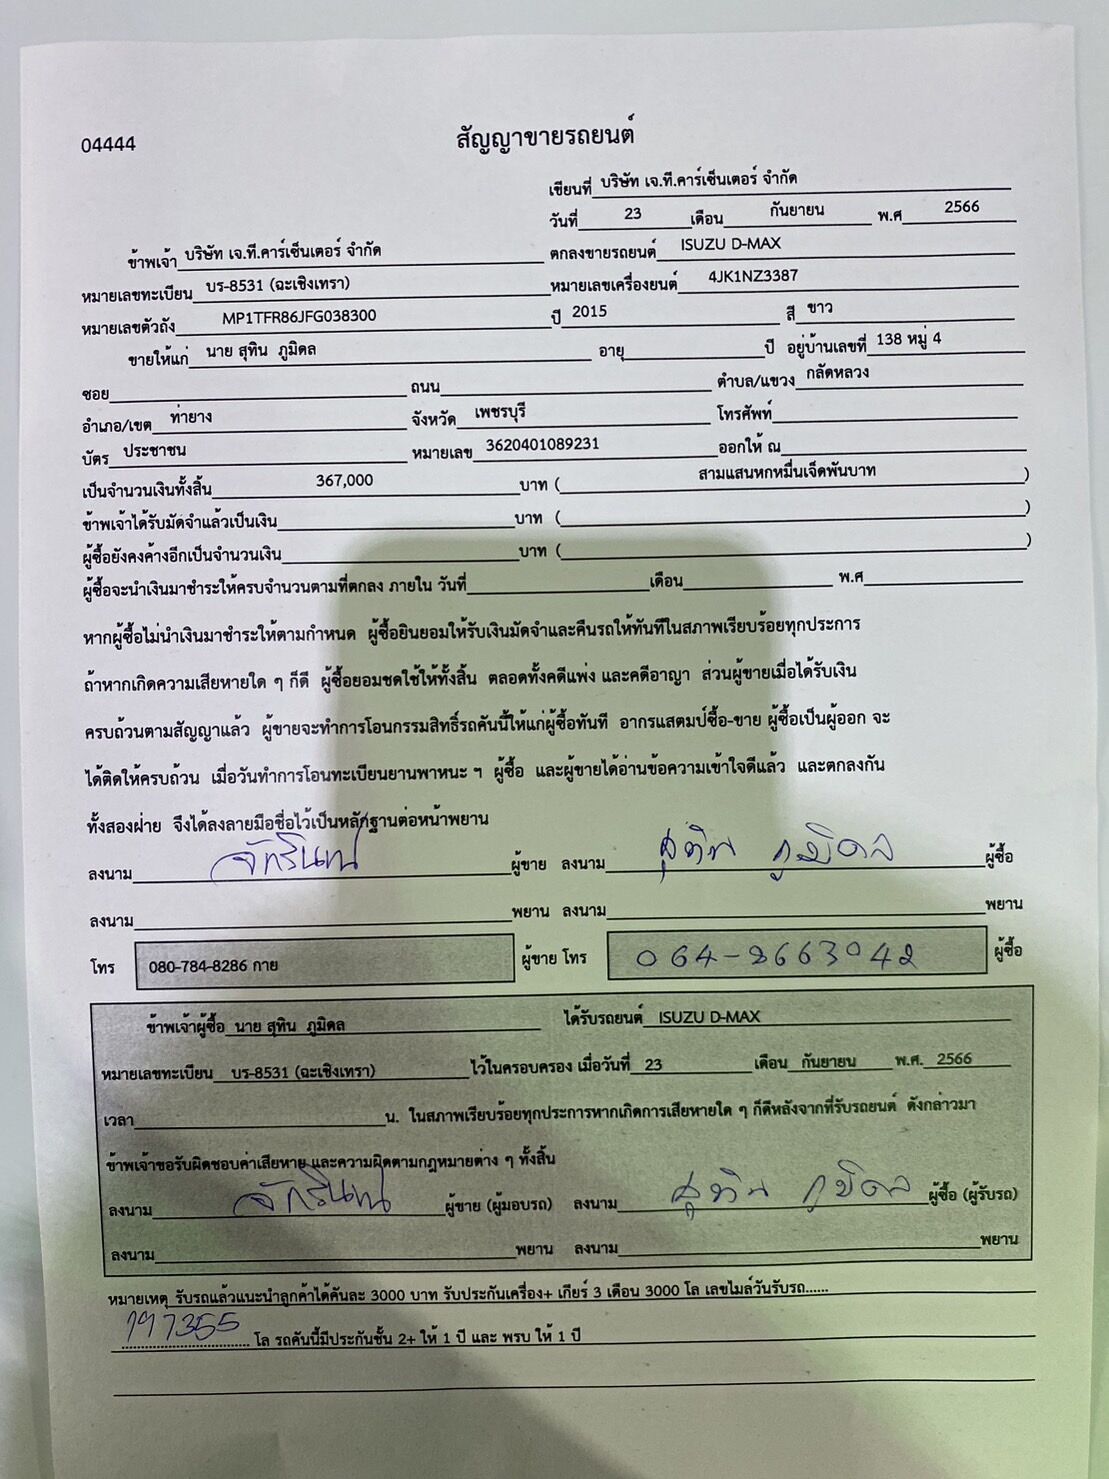 04444
สัญญาขายรถยนต์
เขียนที่ บริษัท เจ.ที.คาร์เซ็นเตอร์ จำกัด
วันที่ 23 เดือน กันยายน พ.ศ 2566
ข้าพเจ้า บริษัท เจ.ที.คาร์เซ็นเตอร์ จำกัด ตกลงขายรถยนต์ ISUZU D-MAX
หมายเลขทะเบียน บร-8531 (ฉะเชิงเทรา) หมายเลขเครื่องยนต์ 4JK1NZ3387
หมายเลขตัวถัง MP1TFR86JFG038300 ปี 2015 สี ขาว
ขายให้แก่ นาย สุทิน ภูมิดล อายุ ปี อยู่บ้านเลขที่ 138 หมู่ 4
ซอย ถนน ตำบล/แขวง กลัดหลวง
อำเภอ/เขต ท่ายาง จังหวัด เพชรบุรี โทรศัพท์
บัตร ประชาชน หมายเลข 3620401089231 ออกให้ ณ
เป็นจำนวนเงินทั้งสิ้น 367,000 บาท ( สามแสนหกหมื่นเจ็ดพันบาท )
ข้าพเจ้าได้รับมัดจำแล้วเป็นเงิน บาท ( )
ผู้ซื้อยังคงค้างอีกเป็นจำนวนเงิน บาท ( )
ผู้ซื้อจะนำเงินมาชำระให้ครบจำนวนตามที่ตกลง ภายใน วันที่ เดือน พ.ศ
หากผู้ซื้อไม่นำเงินมาชำระให้ตามกำหนด ผู้ซื้อยินยอมให้รับเงินมัดจำและคืนรถให้ทันทีในสภาพเรียบร้อยทุกประการ
ถ้าหากเกิดความเสียหายใด ๆ ก็ดี ผู้ซื้อยอมชดใช้ให้ทั้งสิ้น ตลอดทั้งคดีแพ่ง และคดีอาญา ส่วนผู้ขายเมื่อได้รับเงิน
ครบถ้วนตามสัญญาแล้ว ผู้ขายจะทำการโอนกรรมสิทธิ์รถคันนี้ให้แก่ผู้ซื้อทันที อากรแสตมป์ซื้อ-ขาย ผู้ซื้อเป็นผู้ออก จะ
ได้ติดให้ครบถ้วน เมื่อวันทำการโอนทะเบียนยานพาหนะ ฯ ผู้ซื้อ และผู้ขายได้อ่านข้อความเข้าใจดีแล้ว และตกลงกัน
ทั้งสองฝ่าย จึงได้ลงลายมือชื่อไว้เป็นหลักฐานต่อหน้าพยาน
ลงนาม ผู้ขาย ลงนาม สุทิน ภูมิดล ผู้ซื้อ
ลงนาม พยาน ลงนาม พยาน
โทร 080-784-8286 กาย ผู้ขาย โทร 064-8663042 ผู้ซื้อ
ข้าพเจ้าผู้ซื้อ นาย สุทิน ภูมิดล ได้รับรถยนต์ ISUZU D-MAX
หมายเลขทะเบียน บร-8531 (ฉะเชิงเทรา) ไว้ในครอบครอง เมื่อวันที่ 23 เดือน กันยายน พ.ศ. 2566
เวลา น. ในสภาพเรียบร้อยทุกประการหากเกิดการเสียหายใด ๆ ก็ดีหลังจากที่รับรถยนต์ ดังกล่าวมา
ข้าพเจ้าขอรับผิดชอบค่าเสียหาย และความผิดตามกฎหมายต่าง ๆ ทั้งสิ้น
ลงนาม ผู้ขาย (ผู้มอบรถ) ลงนาม สุทิน ภูมิดล ผู้ซื้อ (ผู้รับรถ)
ลงนาม พยาน ลงนาม พยาน
หมายเหตุ รับรถแล้วแนะนำลูกค้าได้คันละ 3000 บาท รับประกันเครื่อง+ เกียร์ 3 เดือน 3000 โล เลขไมล์วันรับรถ......
197355 โล รถคันนี้มีประกันชั้น 2+ ให้ 1 ปี และ พรบ ให้ 1 ปี